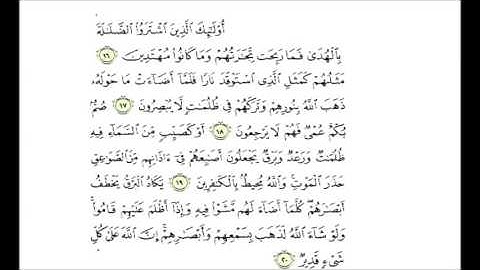 أُوْلَٰٓئِكَ ٱلَّذِينَ ٱشْتَرَوُاْ ٱلضَّلَٰلَةَ
بِٱلْهُدَىٰ فَمَا رَبِحَت تِّجَٰرَتُهُمْ وَمَا كَانُواْ مُهْتَدِينَ ١٦
مَثَلُهُمْ كَمَثَلِ ٱلَّذِى ٱسْتَوْقَدَ نَارًا فَلَمَّآ أَضَآءَتْ مَا حَوْلَهُۥ
ذَهَبَ ٱللَّهُ بِنُورِهِمْ وَتَرَكَهُمْ فِى ظُلُمَٰتٍ لَّا يُبْصِرُونَ ١٧ صُمٌّۢ
بُكْمٌ عُمْىٌ فَهُمْ لَا يَرْجِعُونَ ١٨ أَوْ كَصَيِّبٍ مِّنَ ٱلسَّمَآءِ فِيهِ
ظُلُمَٰتٌ وَرَعْدٌ وَبَرْقٌ يَجْعَلُونَ أَصَٰبِعَهُمْ فِىٓ ءَاذَانِهِم مِّنَ ٱلصَّوَٰعِقِ
حَذَرَ ٱلْمَوْتِ ۚ وَٱللَّهُ مُحِيطٌۢ بِٱلْكَٰفِرِينَ ١٩ يَكَادُ ٱلْبَرْقُ يَخْطَفُ
أَبْصَٰرَهُمْ ۖ كُلَّمَآ أَضَآءَ لَهُم مَّشَوْاْ فِيهِ وَإِذَآ أَظْلَمَ عَلَيْهِمْ قَامُواْ ۚ
وَلَوْ شَآءَ ٱللَّهُ لَذَهَبَ بِسَمْعِهِمْ وَأَبْصَٰرِهِمْ ۚ إِنَّ ٱللَّهَ عَلَىٰ كُلِّ
شَىْءٍ قَدِيرٌ ٢٠